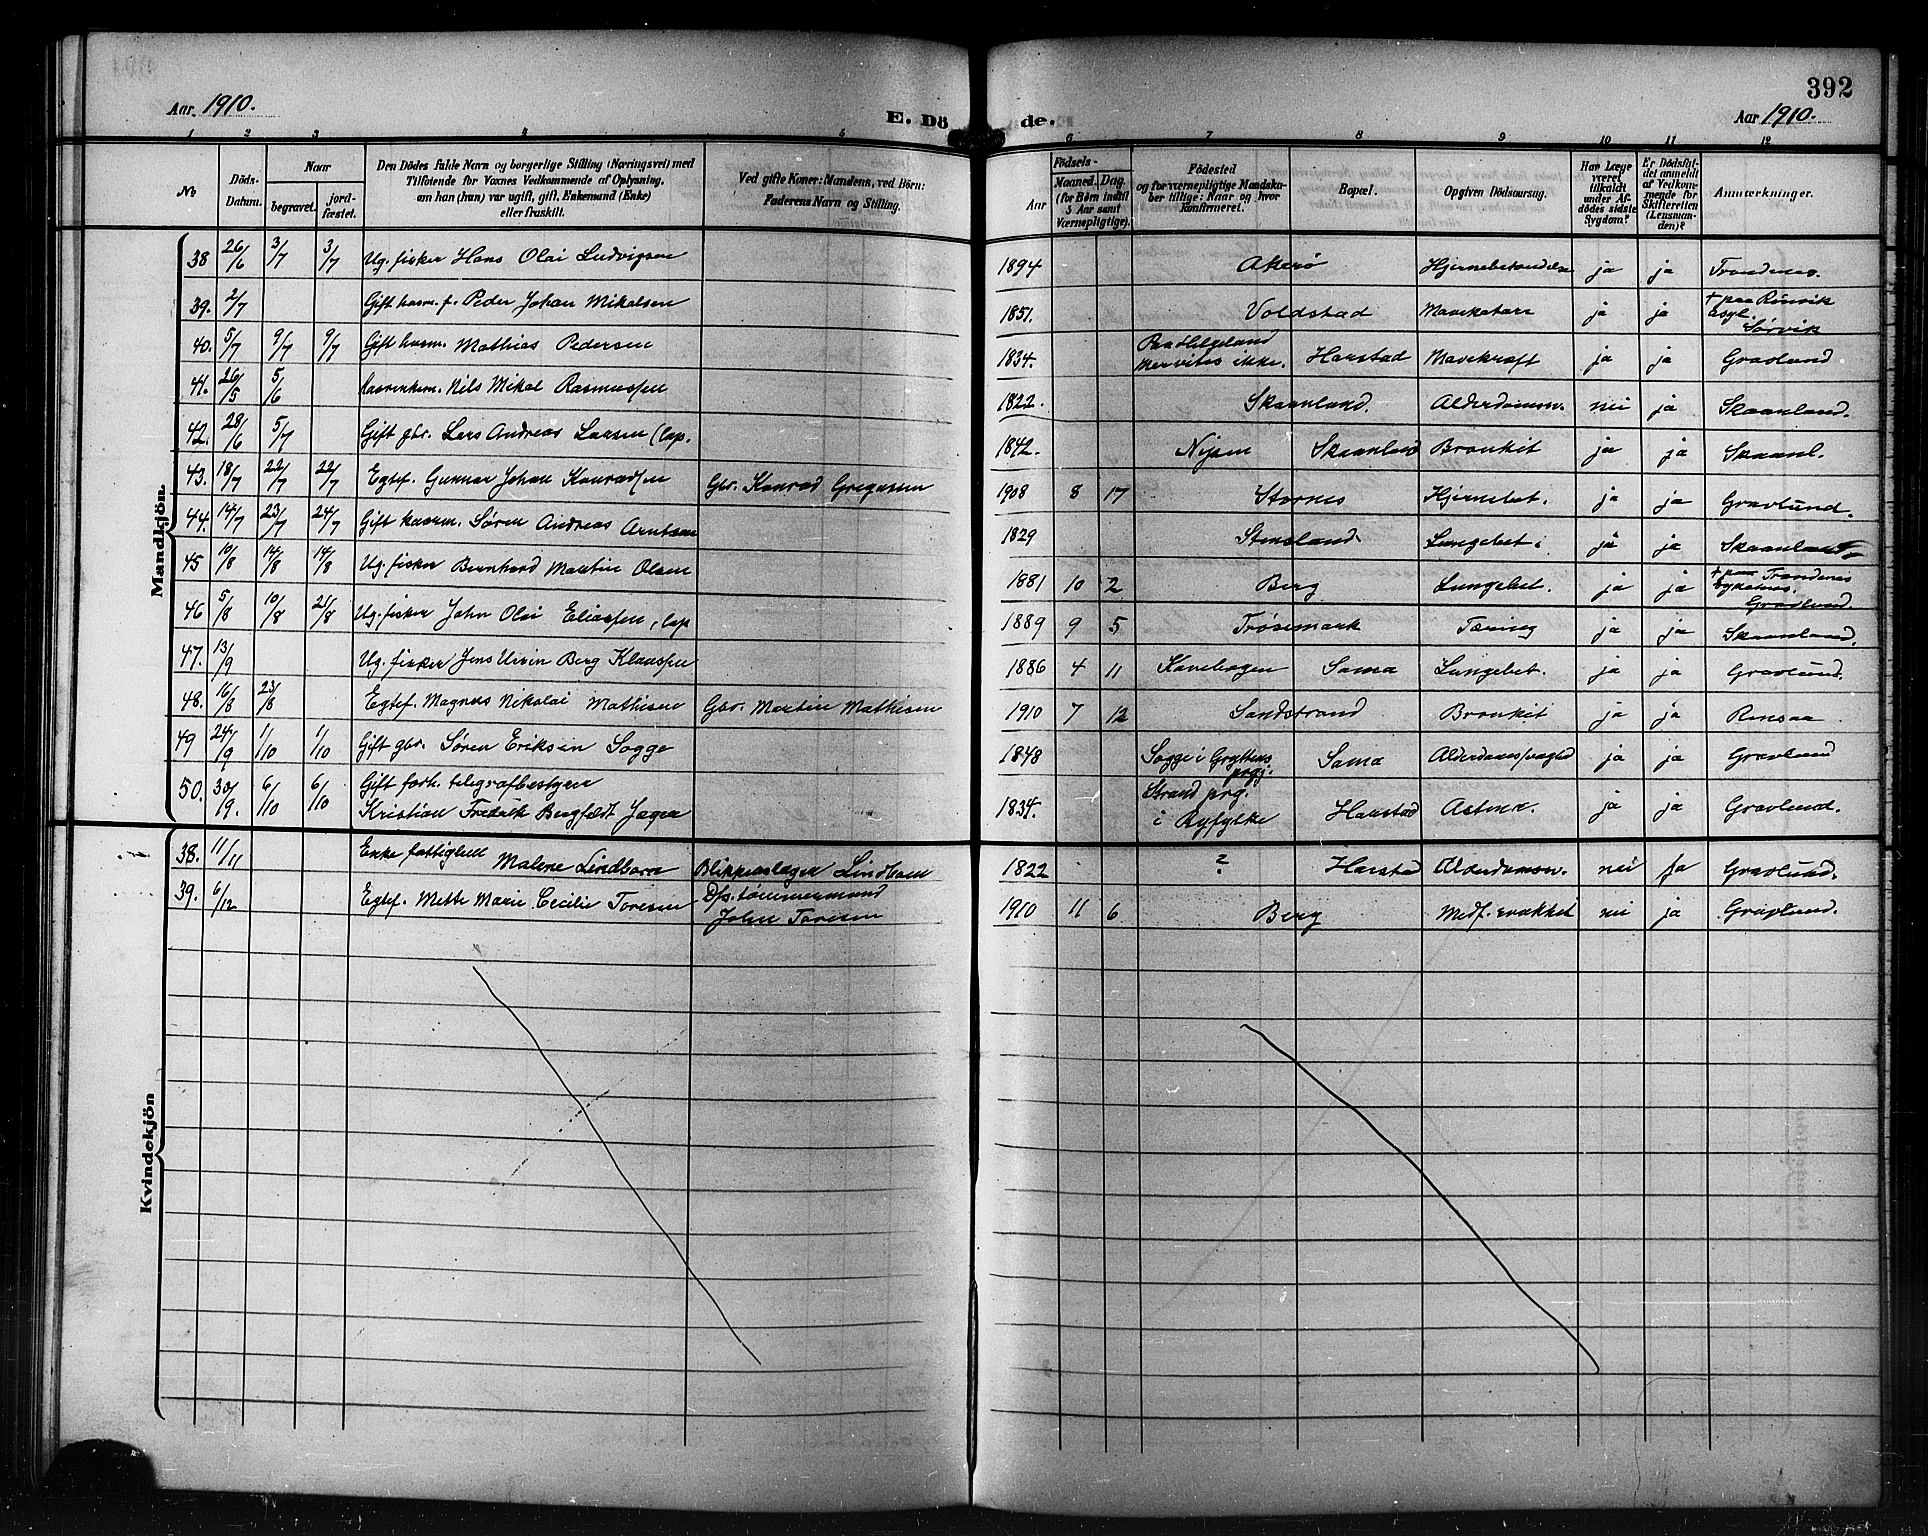 392
Aar 1910.
E. Döde.
Aar 1910.
1 2 3 4 5 6 7 8 9 10 11 12
No
Döds-Datum.
Naar
begravet.
jord-fæstet.
Den Dödes fulde Navn og borgerlige Stilling (Næringsvei) med
Tilföiende for Voxnes Vedkommende af Oplysning,
om han (hun) var ugift, gift, Enkemand (Enke)
eller fraskilt.
Ved gifte Koner: Mandens, ved Börn:
Faderens Navn og Stilling.
Födsels-
Aar
Maaned. Dag.
(for Børn indtil
5 Aar samt
Værnepligtige).
Födested
og for værnepligtige Mandska-
ber tillige: Naar og hvor
Konfirmeret.
Bopæl.
Opgiven Dödsaarsag.
Har Læge
været
tilkaldt
under Af-
dödes sidste
Sygdom?
Er Dödsfal-
det anmeldt
af Vedkom-
mende for
Skifteretten
(Lensman-
den)?
Anmærkninger.
Mandkjön.
38 26/6 3/7 3/7 Ug. fisker Hans Olai Ludvigsen 1894 Akerö Hjernebetændelse ja ja Trondenes.
39. 2/7 Gift husm. f. Peder Johan Mikalsen 1851. Voldstad Mavekatarr ja ja + paa Rönvik
asyl. Sørvik
40. 5/7 9/7 9/7 Gift husm. Mathias Pedersen 1834. Paa Helgeland
mer vites ikke. Harstad Mavekræft ja ja Gravlund
41. 26/5 5/6 Nils Mikal Rasmussen 1822. Skaanland. Alderdomssv. nei ja Skaanland.
42. 28/6 5/7 Gift gbr. Lars Andreas Larsen (lap. 1842. Skaanland Bronkit ja ja Skaanl.
43. 18/7 22/7 22/7 Egtef. Gunnar Johan Konradsen Gbr. Konrad Gregusen 1908 8 17 Stornes Hjernebet. ja ja Gravlund.
44. 14/7 23/7 24/7 Gift kaarm. Søren Andreas Arntsen 1829 Stensland Lungebet. ja ja Skaanland
45 10/8 14/8 14/8 Ug. fisker Bernhard Martin Olsen 1881 10 2 Berg Lungebet. ja ja + paa Trondenes
sykehus. Gravlund.
46 5/8 10/8 21/8 Ug. fisker John Olai Eliassen, lap 1889 9 5 Trøsemark Tæring ja ja Skaanland.
47. 13/9 Ug. fisker Jens Urvin Berg Klaussen 1886 4 11 Kanebogen Sama Lungebet. ja ja Gravlund.
48. 16/8 23/8 Egtef. Magnus Nikolai Mathisen Gbr. Martin Mathisen 1910 7 12 Sandstrand Bronkit ja ja Rensaa
49 24/9 1/10 1/10 Gift gbr. Søren Eriksen Sogge 1848 Sogge i Gryttens
prgj. Sama Alderdomssvaghed ja ja Gravlund
50. 30/9. 6/10 6/10 Gift forh. telegrafbestyrer
Kristian Fredrik Bergfeldt Jæger 1834. Strand prg.
i Ryfylke Harstad Astma. ja ja Gravlund.
Kvindekjön
38. 11/11 Enke fattiglem Malene Lindbom Blikkenslager Lindbom 1822 ? Harstad Alderdomssv. nei ja Gravlund.
39. 6/12 Egtef. Mette Marie Cecilie Toresen Dfs. tømmermand
John Toresen 1910 11 6 Berg Medf. svakhet nei ja Gravlund.